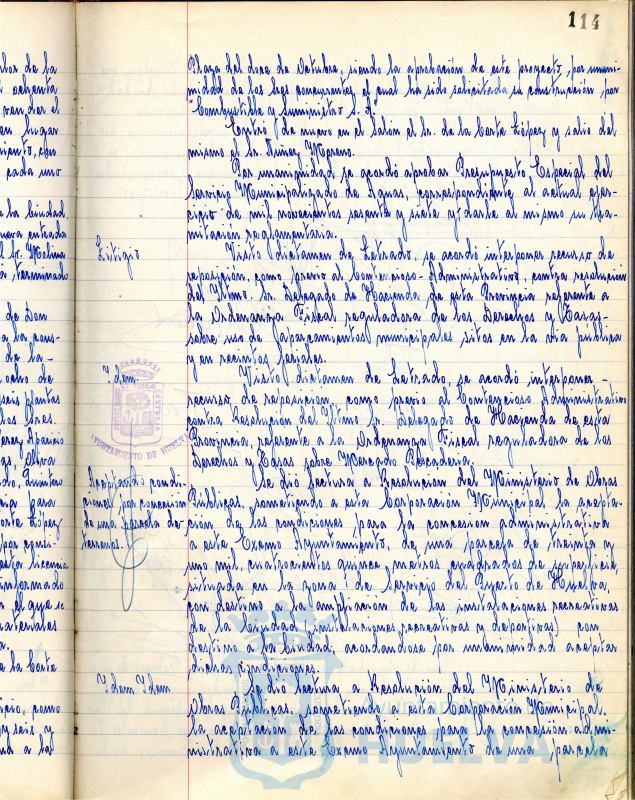 114
Plaza del doce de Octubre, siendo la aprobación de este proyecto, por unani-
midad de los Sres concurrentes, el cual ha sido solicitada su construcción por
"Combustible y Suministro S. A."
Entró de nuevo en el Salón el Sr. de la Corte López y salió del
mismo el Sr. Jiménez Moreno.
Por unanimidad se acordó aprobar Presupuesto Especial del
Servicio Municipalizado de Aguas, correspondiente al actual ejer-
cicio de mil novecientos sesenta y siete y darle al mismo su tra-
mitación reglamentaria.
Litigio
Visto dictamen de Letrado, se acordó interponer recurso de
reposición, como previo al Contencioso-Administrativo, contra resolución
del Iltmo. Sr. Delegado de Hacienda de esta Provincia referente a
la Ordenanza Fiscal reguladora de los Derechos y Tasas
sobre uso de aparcamientos municipales sitos en la vía pública
y en recintos feriales.
Idem
Visto dictamen de Letrado, se acordó interponer
recurso de reposición, como previo al Contencioso Administrativo
contra Resolución del Iltmo Sr. Delegado de Hacienda de esta
Provincia, referente a la Ordenanza Fiscal reguladora de los
Derechos y Tasas sobre Mercado Pescadería.
Aceptando condi-
ciones por concesión
de una parcela de
terrenos.
Se dió lectura a Resolución del Ministerio de Obras
Públicas, sometiendo a esta Corporación Municipal la acepta-
ción de las condiciones para la concesión administrativa
a este Excmo Ayuntamiento, de una parcela de treinta y
uno mil, cuatrocientos quince metros cuadrados de superficie,
situada en la zona de Servicio del Puerto de Huelva,
con destino a la ampliación de las instalaciones recreativas
de la Ciudad (instalaciones recreativas y deportivas) con
destino a la Ciudad, acordandose por unanimidad aceptar
dichas condiciones.
Idem Idem
Se dió lectura a Resolución del Ministerio de
Obras Públicas, sometiendo a esta Corporación Municipal,
la aceptación de las condiciones para la concesión admi-
nistrativa a este Excmo Ayuntamiento de una parcela
AYUNTAMIENTO DE HUELVA
HUELVA